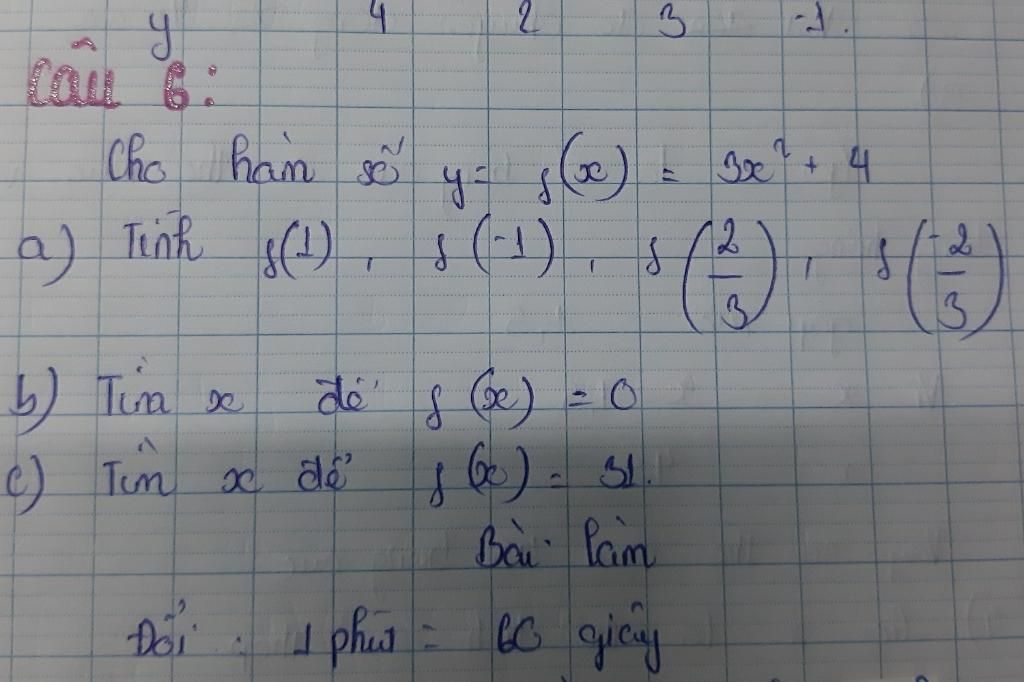 y 4 2 3 -1.
Câu 6:
Cho hàm số y = f(x) = 3x² + 4
a) Tính f(1), f(-1), f(2/3), f(-2/3)
b) Tìm x để f(x) = 0
c) Tìm x để f(x) = 31.
Bài làm
Đổi: 1 phút = 60 giây